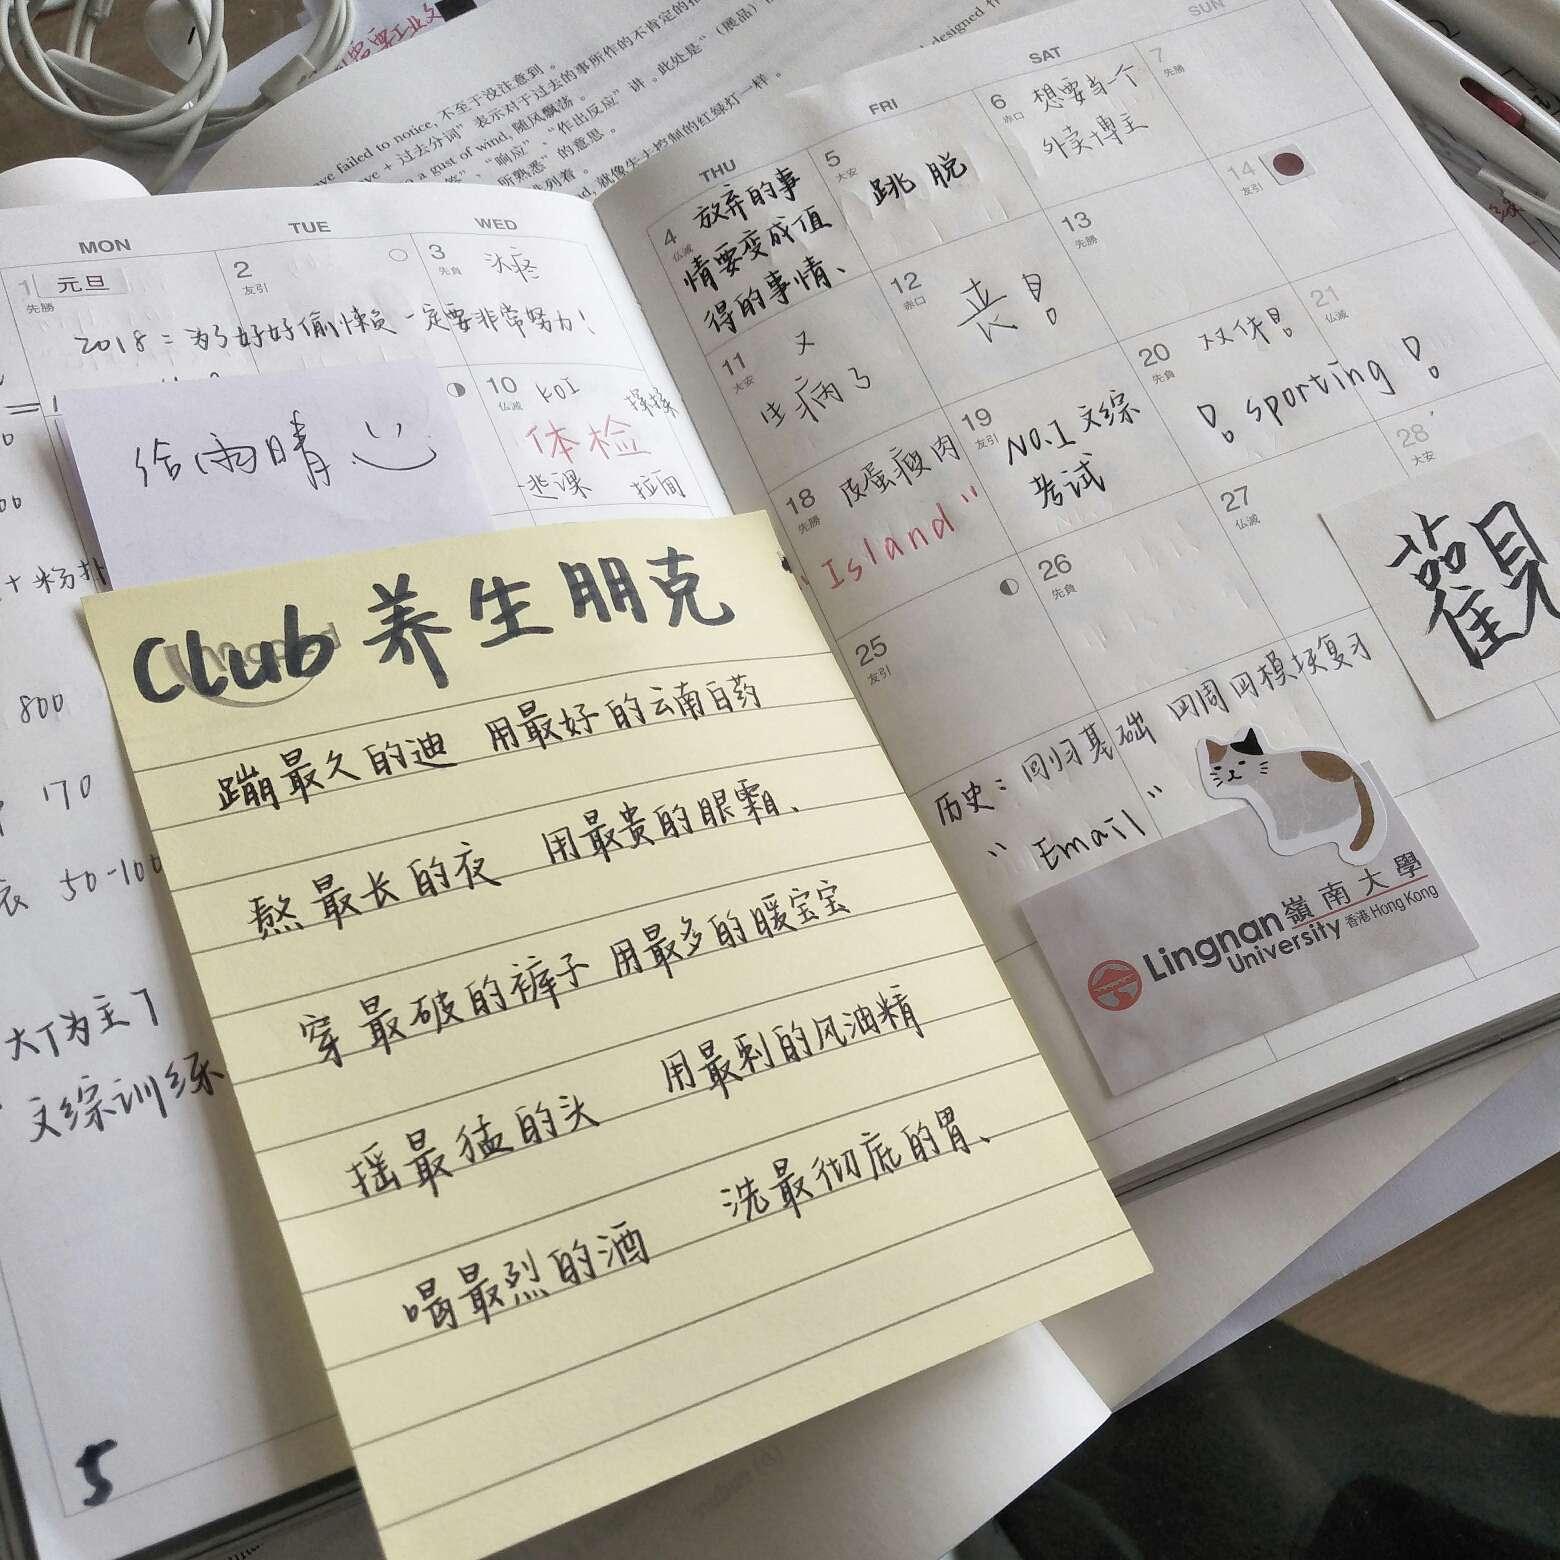 有 failed to notice, 不至于没注意到。
+ 过去分词”表示对于过去的事所作的不肯定的
a gust of wind, 随风飘荡。
“响应”、“作出反应”讲。此处是“(展品)
所熟悉”的意思。
就像生土控制的红绿灯一样。
designed
MON
TUE
WED
THU
FRI
SAT
SUN
1 元旦
先勝
2
友引
3 头疼
先負
4 放弃的事
仏滅 情要变成值
得的事情、
5
大安
跳脱
6 想要当一个
赤口 外卖博主
7
先勝
2018：为了好好偷懒 一定要非常努力！
给雨晴
10 KOI
仏滅
体检
逃课 拉面
11 又
大安 生病了
12
赤口
丧！
13
先勝
14
友引
18 皮蛋瘦肉
先勝
"Island"
19 NO.1 文综
友引 考试
20 双休！
先負
! sporting !
21
仏滅
25
友引
26
先負
27
仏滅
28
大安
觀
历史：回归基础 四周四模块复习
"Email"
Lingnan 嶺南大學
University 香港 Hong Kong
Club 养生朋克
蹦最久的迪 用最好的云南白药
熬最长的夜 用最贵的眼霜、
穿最破的裤子 用最多的暖宝宝
摇最猛的头 用最刺的风油精
喝最烈的酒 洗最彻底的胃、
+粉扑
800
170
50-100
大T为主
文综训练
5